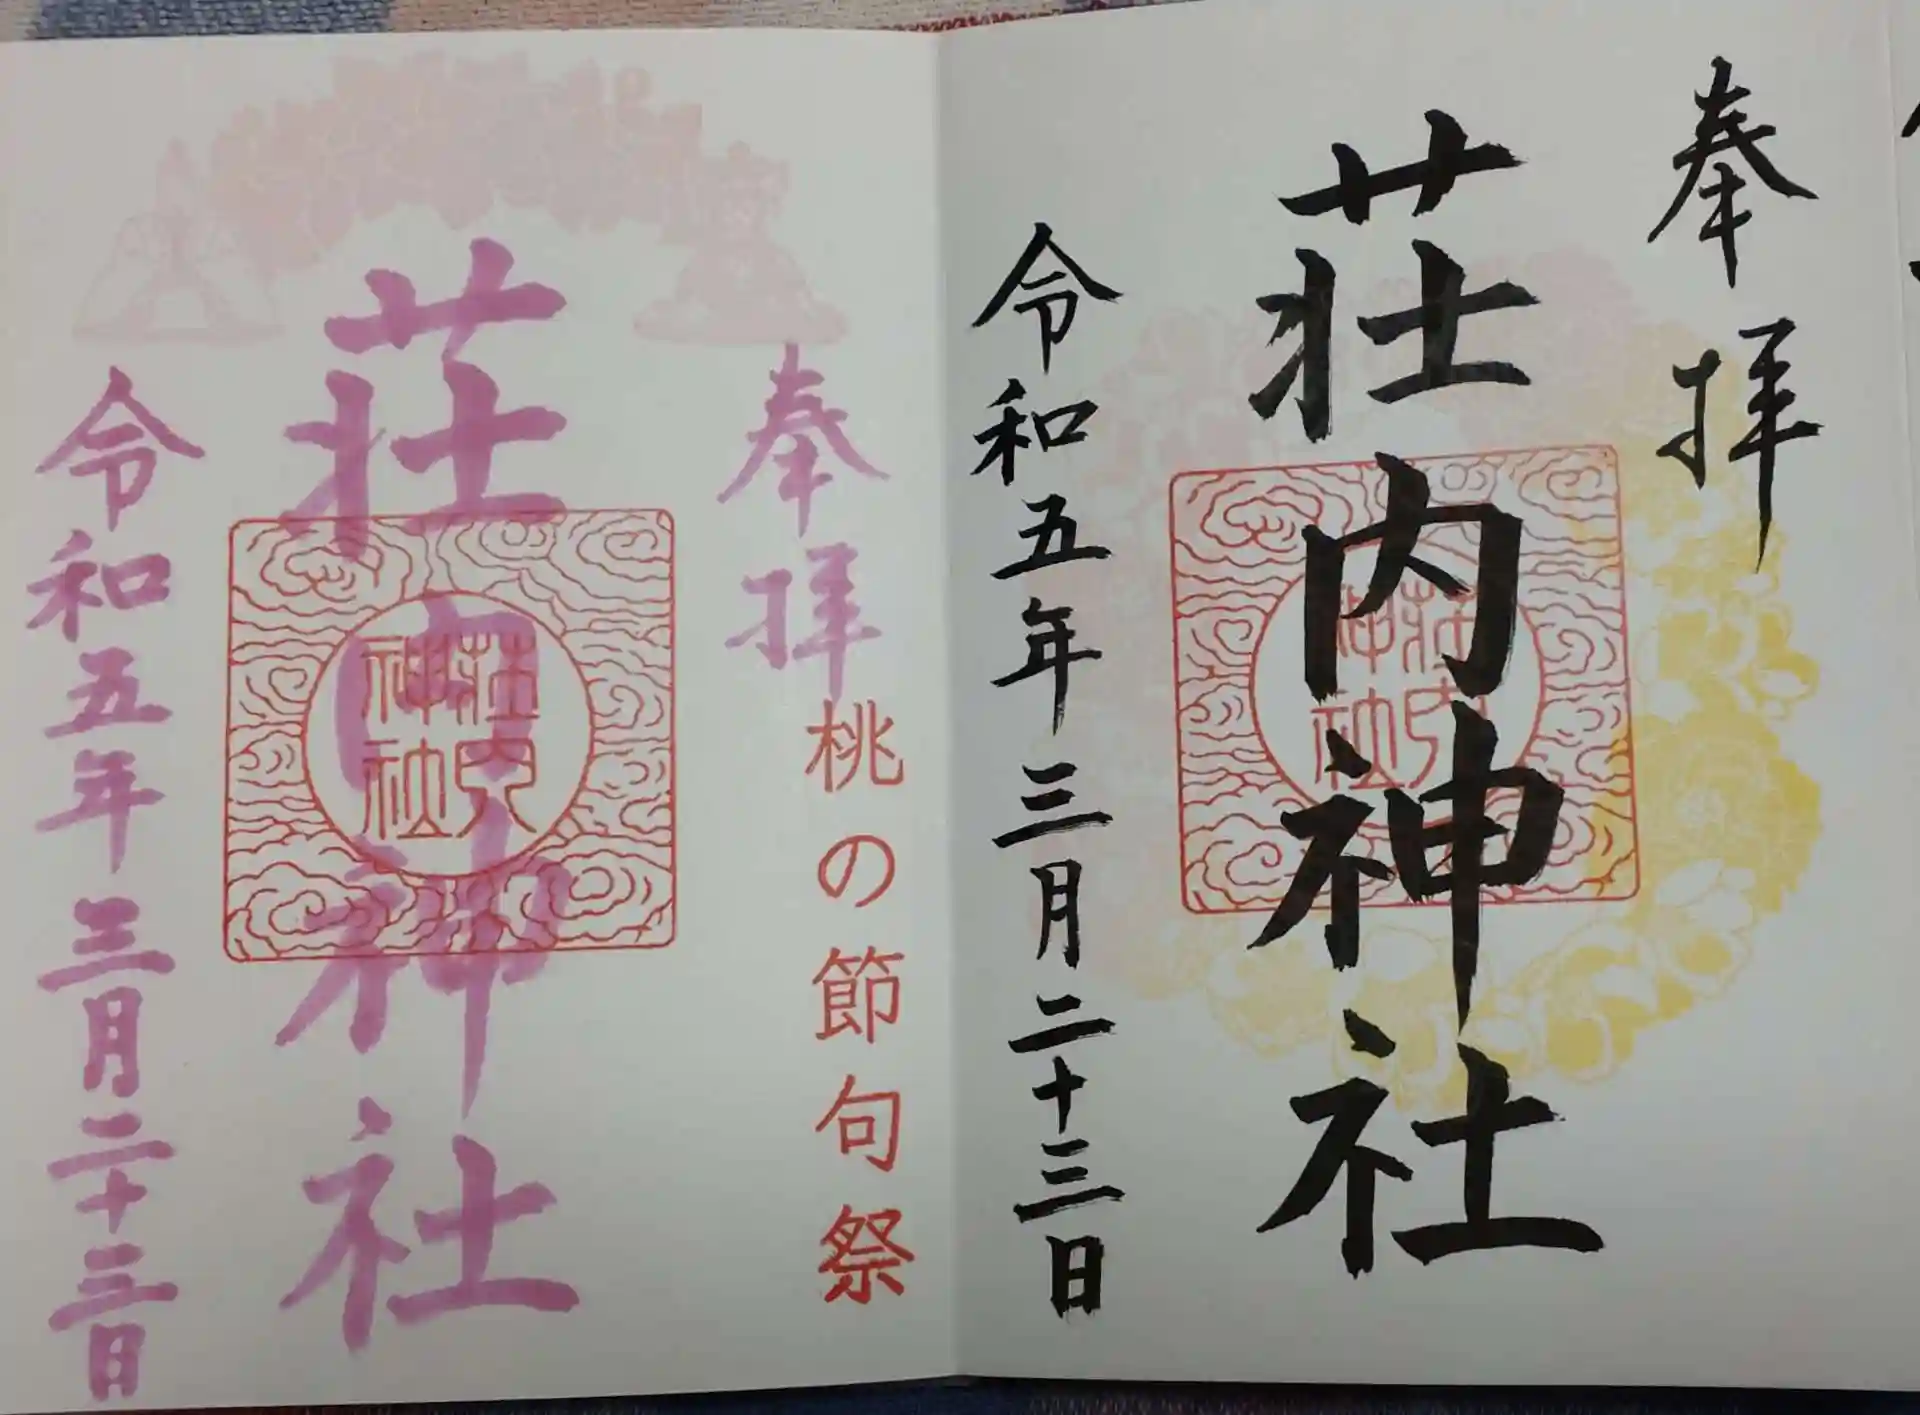 奉拝
荘内神社
荘内
神社
令和五年三月二十三日
奉拝
桃の節句祭
荘内神社
荘内
神社
令和五年三月二十三日